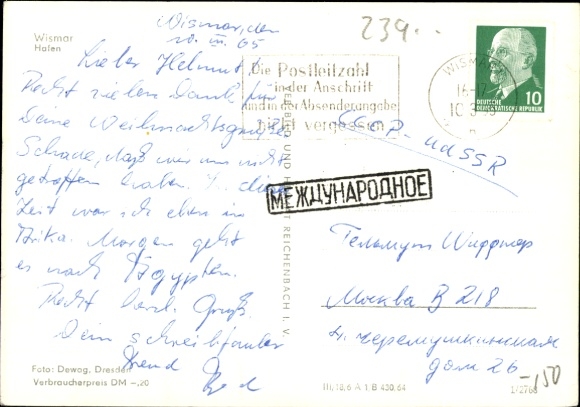 Wismar
Hafen
Wismar, den
10. III. 65
Lieber Helmut!
Recht vielen Dank für
Deine Weihnachtsgrüße
Schade, daß wir uns nicht
getroffen haben. In dieser
Zeit war ich eben in
Afrika. Morgen geht
es nach Ägypten.
Recht herzl. Gruß
Dein schreibfauler
Freund
Foto: Dewag, Dresden
Verbraucherpreis DM -,20
239
Die Postleitzahl
in der Anschrift
und in der Absenderangabe
nicht vergessen
WISMAR
16-17
10.3.65
DEUTSCHE
DEMOKRATISCHE REPUBLIK
10
СССР - UdSSR
МЕЖДУНАРОДНОЕ
VEB BILD UND HEIMAT REICHENBACH I. V.
Гельмут Шиффнер
Москва В 218
н. черемушкинская
дом 26
III/18/6 A 1 B 430/64
1/2768
-,50